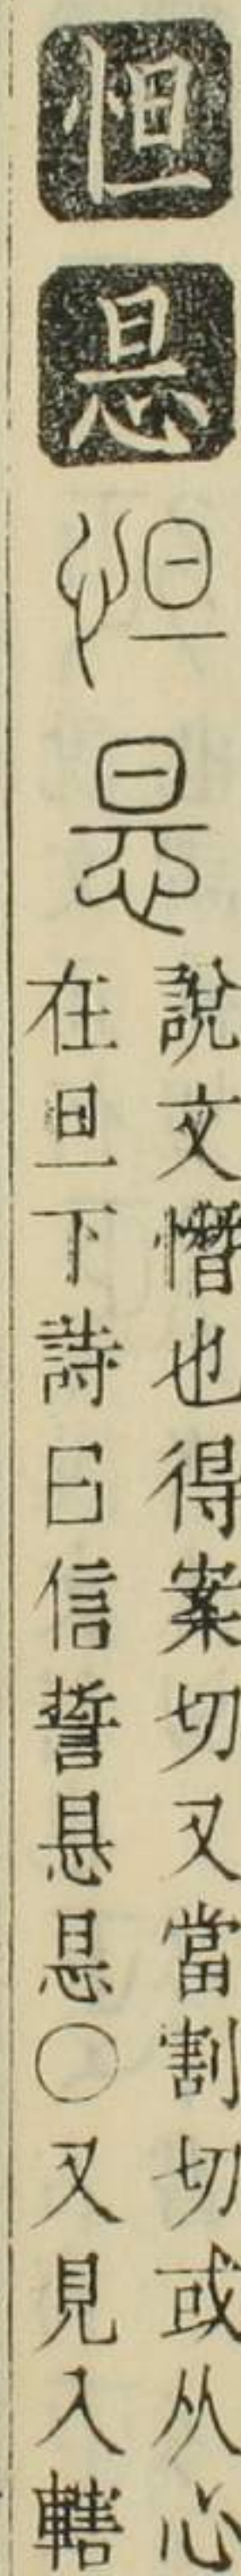 怛
悬
怛
悬
說文憯也得案切又當割切或从心
在旦下詩曰信誓悬悬〇又見入轄